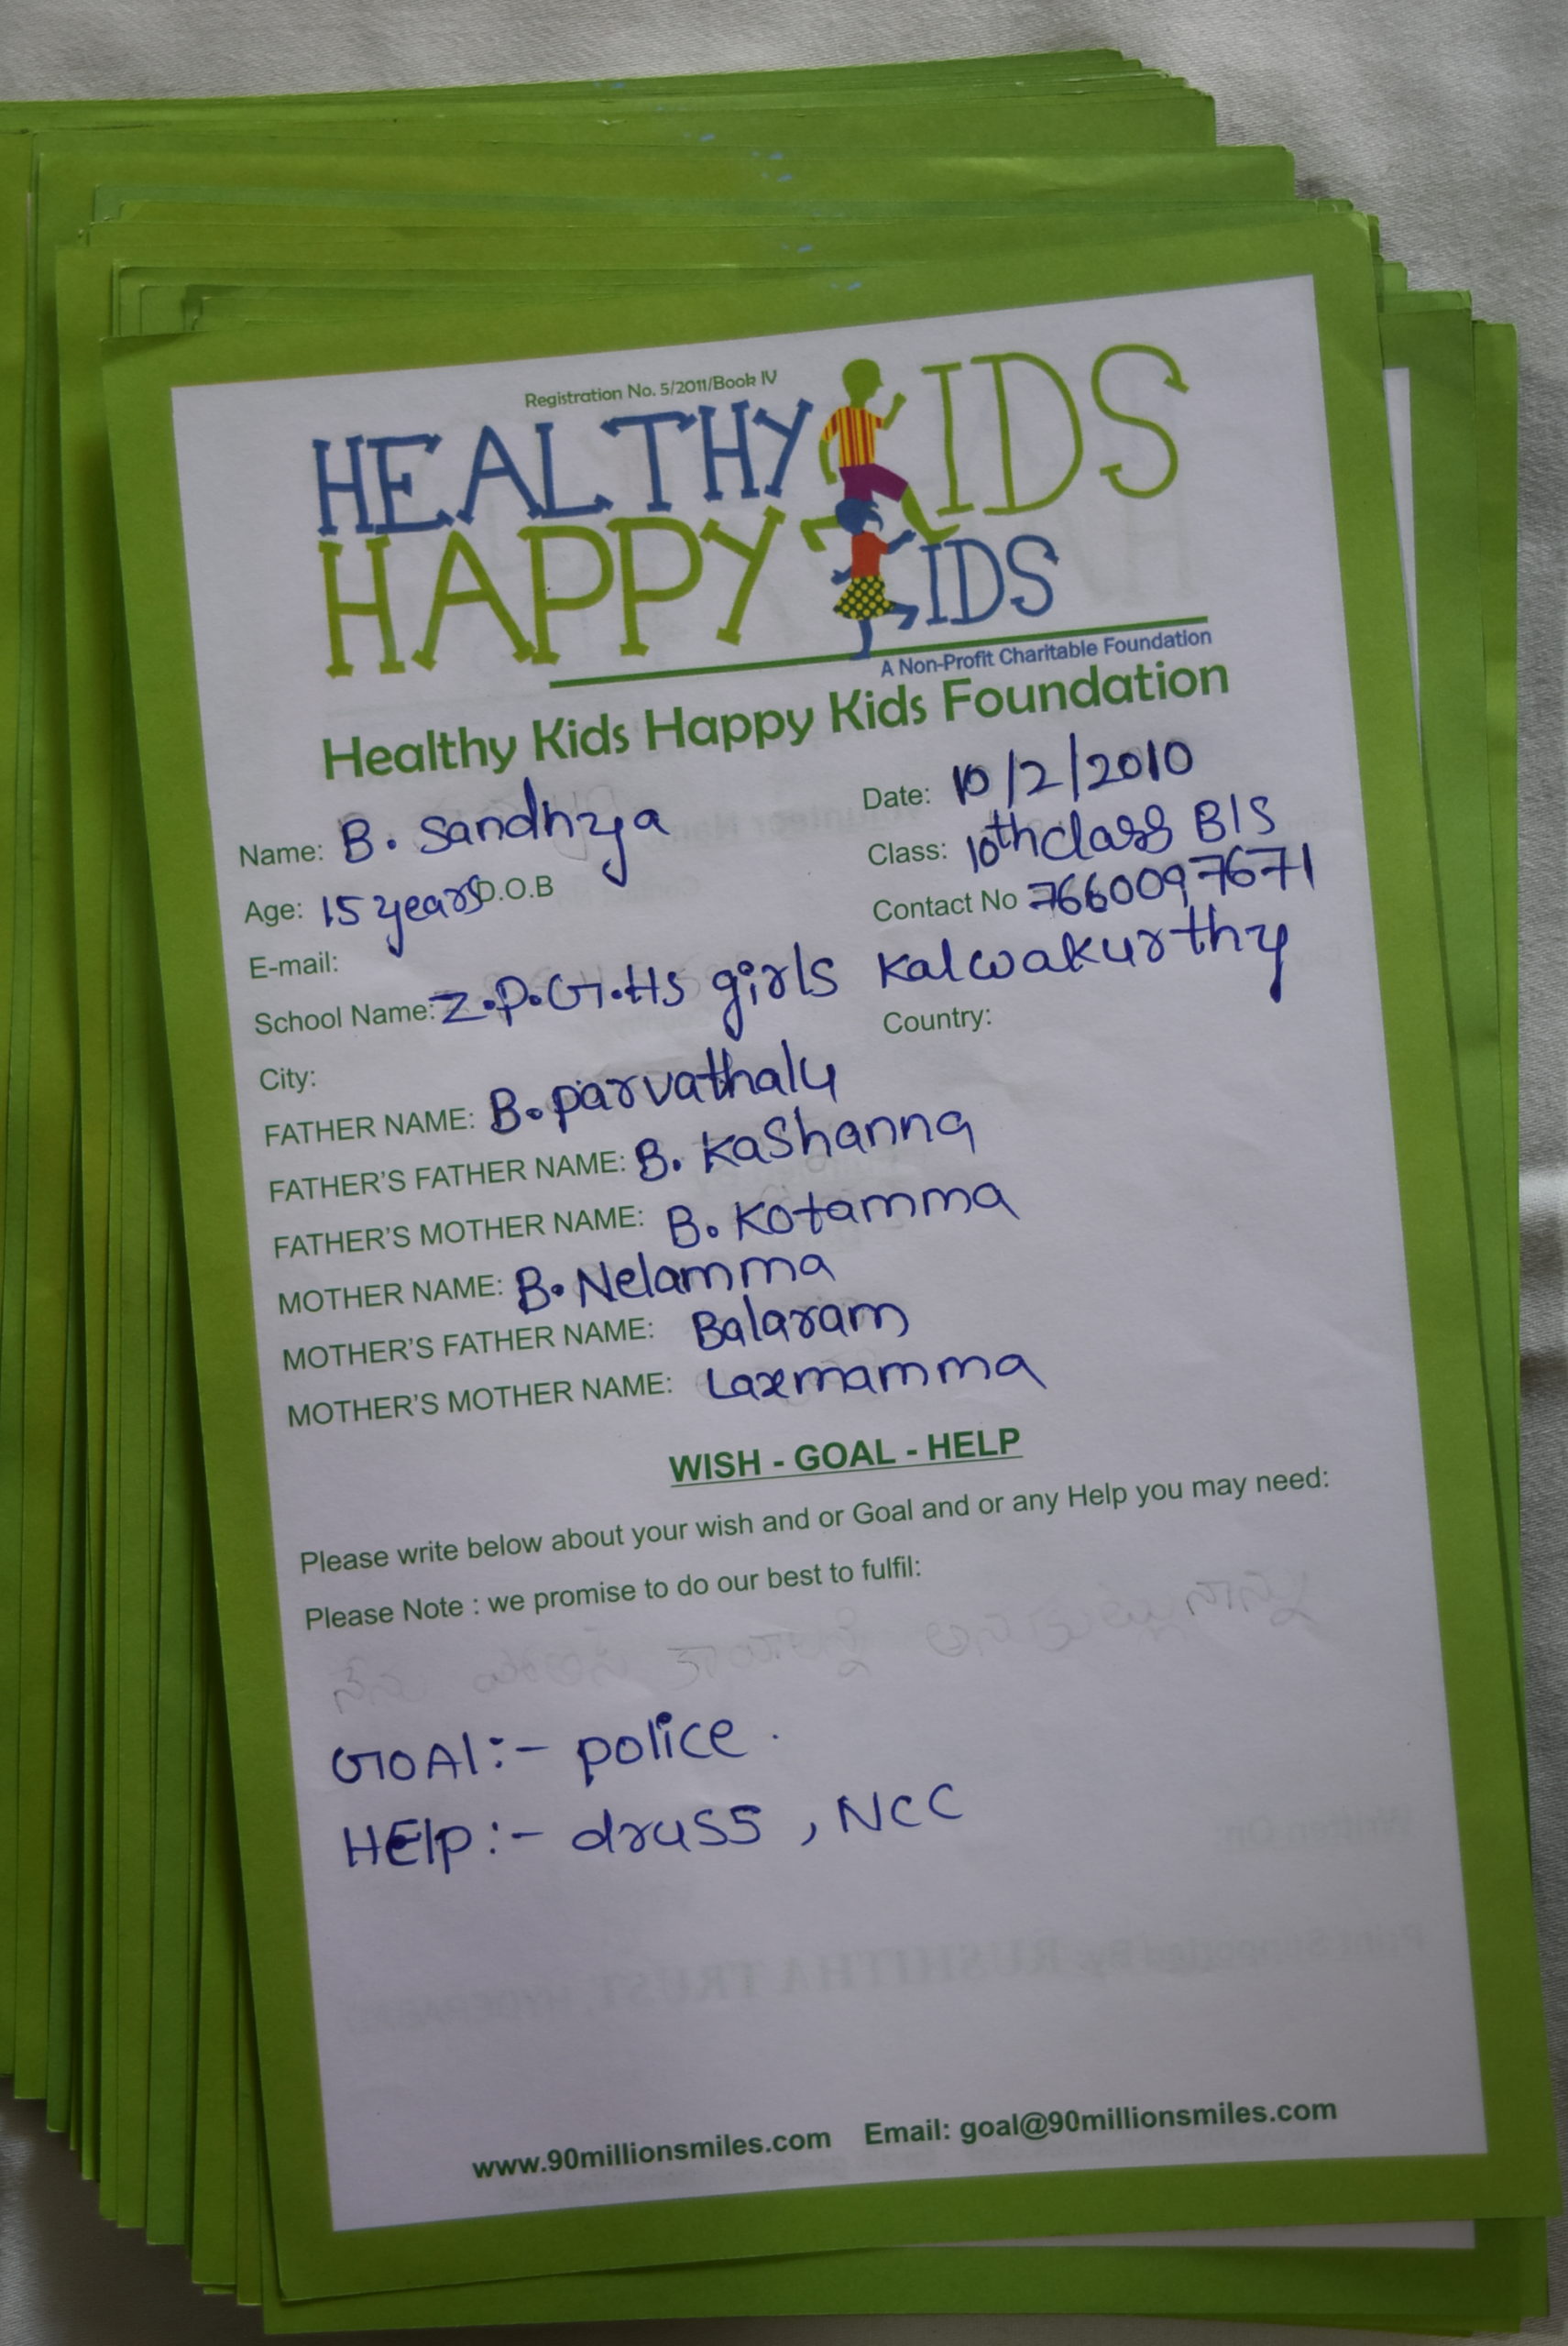 Registration No. 5/2011/Book IV
HEALTHY KIDS
HAPPY KIDS
A Non-Profit Charitable Foundation
Healthy Kids Happy Kids Foundation
Name: B. Sandhya Date: 10/2/2010
Age: 15 years D.O.B Class: 10th class B/S
E-mail: Contact No 7660097671
School Name: Z.P.G.HS girls Kalwakurthy
City: Country:
FATHER NAME: B. parvathalu
FATHER'S FATHER NAME: B. Kashanna
FATHER'S MOTHER NAME: B. Kotamma
MOTHER NAME: B. Nelamma
MOTHER'S FATHER NAME: Balaram
MOTHER'S MOTHER NAME: Laxmamma
WISH - GOAL - HELP
Please write below about your wish and or Goal and or any Help you may need:
Please Note : we promise to do our best to fulfil:
నేను
GOAl:- police.
HElp:- druss, NCC
www.90millionsmiles.com Email: goal@90millionsmiles.com